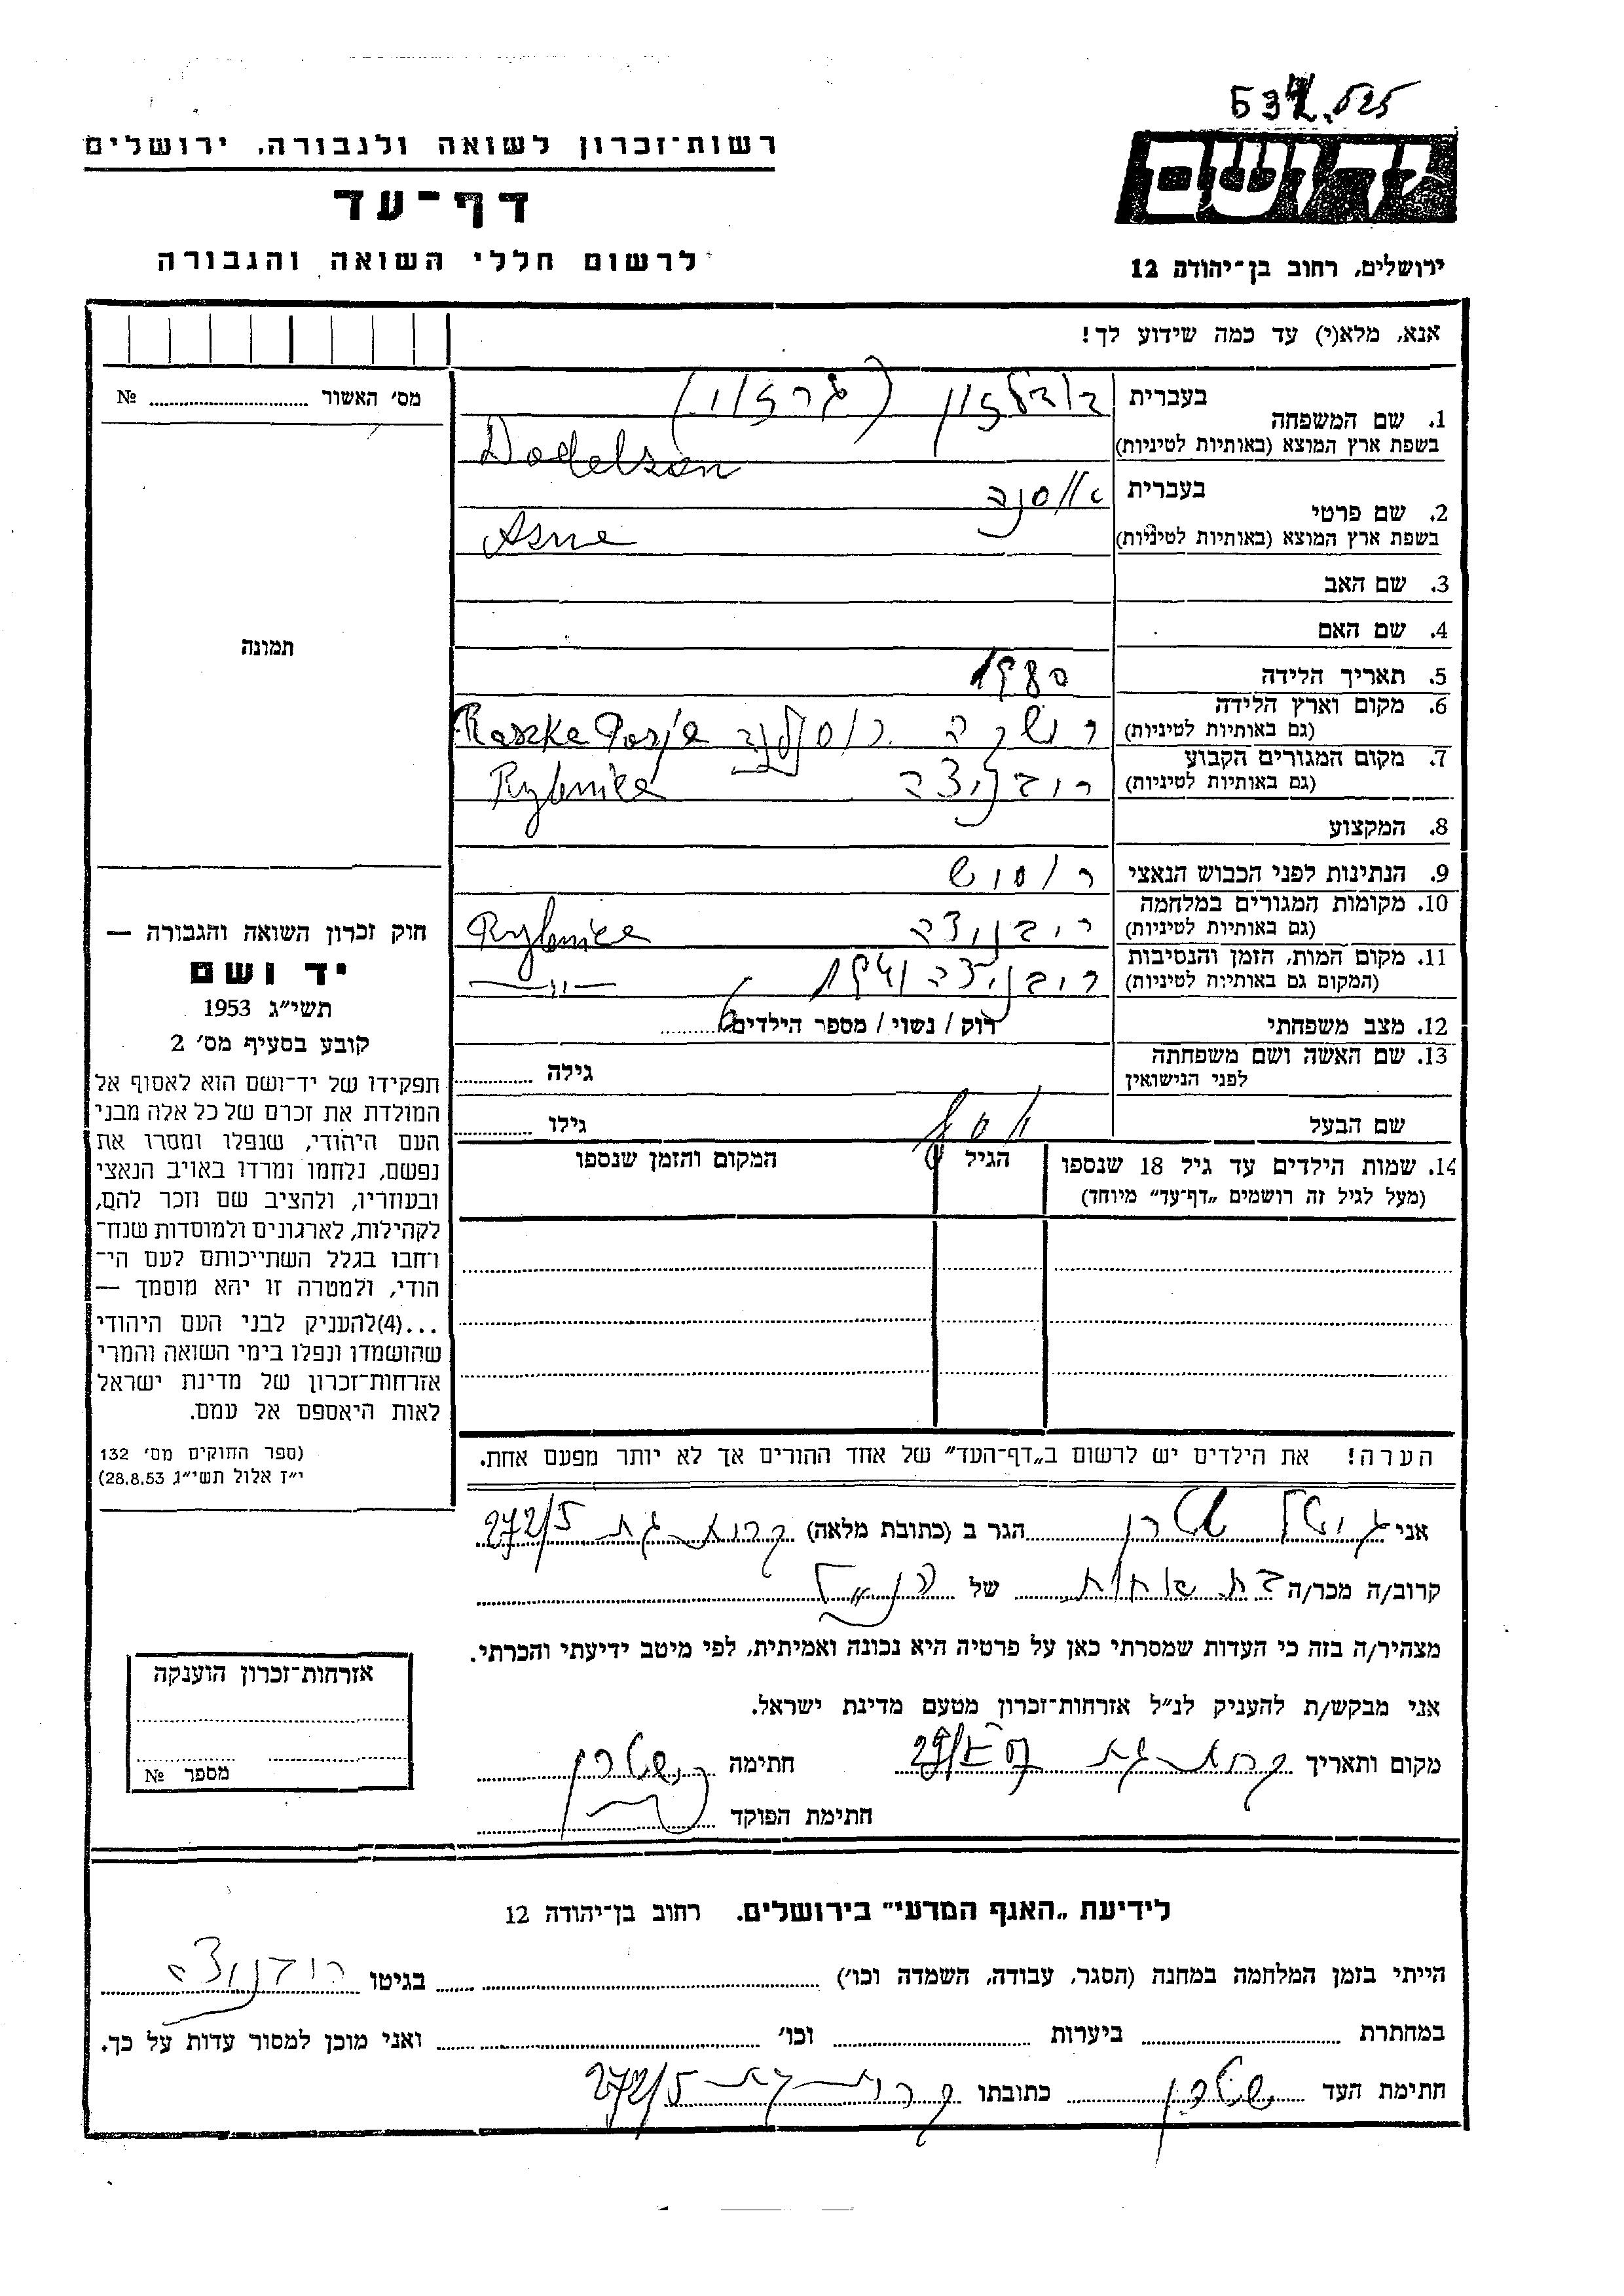 537.525
רשות־זכרון לשואה ולגבורה, ירושלים
דף־עד
לרשום חללי השואה והגבורה
יד ושם
ירושלים, רחוב בן־יהודה 12
אנא, מלא(י) עד כמה שידוע לך!
מס׳ האשור ........ №
תמונה
1. שם המשפחה
בעברית דודלזון
בשפת ארץ המוצא (באותיות לטיניות) Dodelson
2. שם פרטי
בעברית אוסנה
בשפת ארץ המוצא (באותיות לטיניות) Asne
3. שם האב
4. שם האם
5. תאריך הלידה 1980
6. מקום וארץ הלידה
(גם באותיות לטיניות) רשקה Raszka
7. מקום המגורים הקבוע
(גם באותיות לטיניות) ריבניצה Rybnice
8. המקצוע
9. הנתינות לפני הכבוש הנאצי רוסיש
10. מקומות המגורים במלחמה
(גם באותיות לטיניות) ריבניצה Rybnice
11. מקום המות, הזמן והנסיבות
(המקום גם באותיות לטיניות) ריבניצה 1941 —〃—
12. מצב משפחתי רוק / נשוי / מספר הילדים 6
13. שם האשה ושם משפחתה
לפני הנישואין גילה
שם הבעל יוסף גילו
14. שמות הילדים עד גיל 18 שנספו
(מעל לגיל זה רושמים „דף־עד״ מיוחד)
הגיל
המקום והזמן שנספו
חוק זכרון השואה והגבורה —
יד ושם
תשי״ג 1953
קובע בסעיף מס׳ 2
תפקידו של יד־ושם הוא לאסוף אל
המולדת את זכרם של כל אלה מבני
העם היהודי, שנפלו ומסרו את
נפשם, נלחמו ומרדו באויב הנאצי
ובעוזריו, ולהציב שם וזכר להם,
לקהילות, לארגונים ולמוסדות שנח־
רחבו בגלל השתייכותם לעם הי־
הודי, ולמטרה זו יהא מוסמך —
...(4)להעניק לבני העם היהודי
שהושמדו ונפלו בימי השואה והמרי
אזרחות־זכרון של מדינת ישראל
לאות היאספם אל עמם.
(ספר החוקים מס׳ 132
י״ז אלול תשי״ג 28.8.53)
הערה! את הילדים יש לרשום ב„דף־העד״ של אחד ההורים אך לא יותר מפעם אחת.
אני שטרן הגר ב (כתובת מלאה) קרית־גת 272/5
קרוב/ה מכר/ה בת אחות של הנ״ל
מצהיר/ה בזה כי העדות שמסרתי כאן על פרטיה היא נכונה ואמיתית, לפי מיטב ידיעתי והכרתי.
אני מבקש/ת להעניק לנ״ל אזרחות־זכרון מטעם מדינת ישראל.
מקום ותאריך קרית־גת חתימה שטרן
חתימת הפוקד
אזרחות־זכרון הוענקה
מספר №
לידיעת „האגף המדעי״ בירושלים. רחוב בן־יהודה 12
הייתי בזמן המלחמה במחנה (הסגר, עבודה, השמדה וכו׳) ........ בגיטו ריבניצה
במחתרת ........ ביערות ........ וכו׳ ........ ואני מוכן למסור עדות על כך.
חתימת העד שטרן כתובתו קרית־גת 272/5